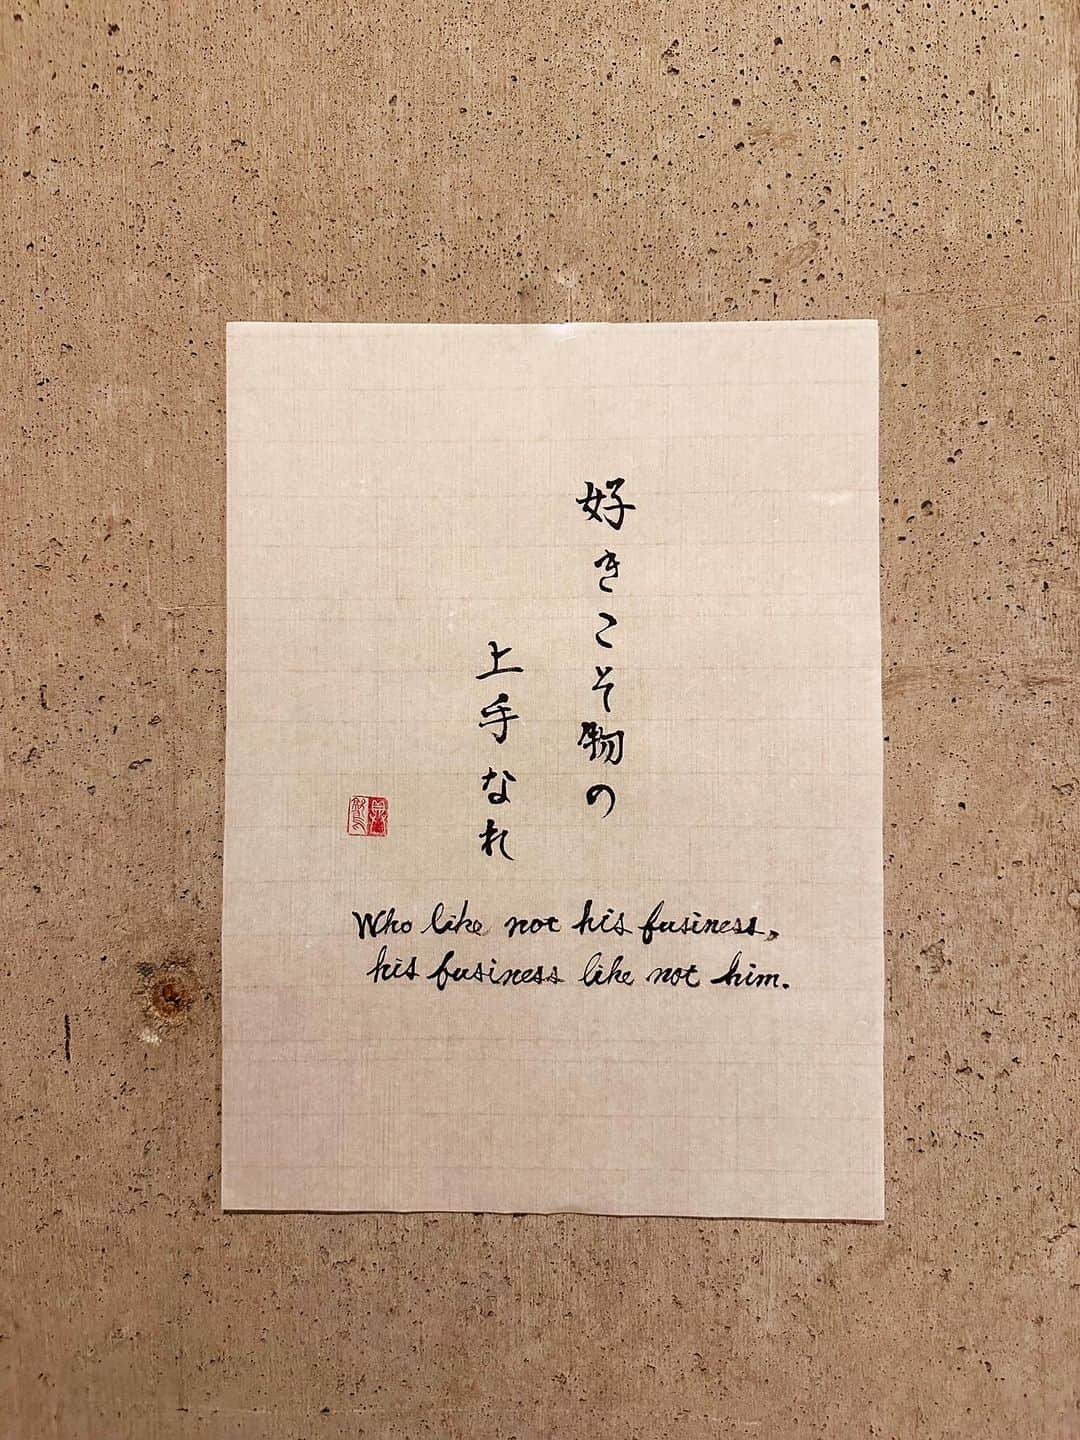 好きこそ物の
上手なれ
Who like not his business,
his business like not him.